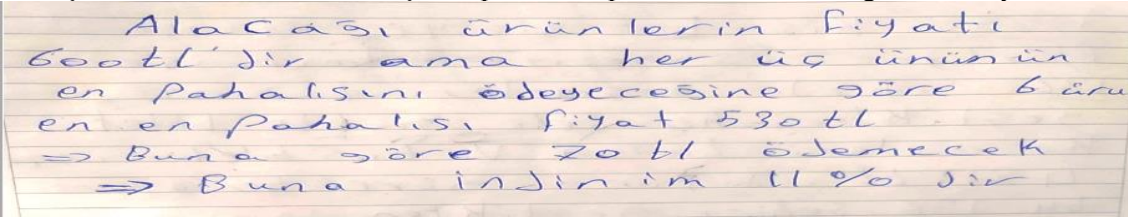 Alacağı ürünlerin fiyatı
600tl dir ama her üç ününün
en pahalısını ödeyeceğine göre 6 ürü
en en pahalısı fiyat 530tl
⇒ Buna göre 70 tl ödemecek
⇒ Buna indinim 11% dir